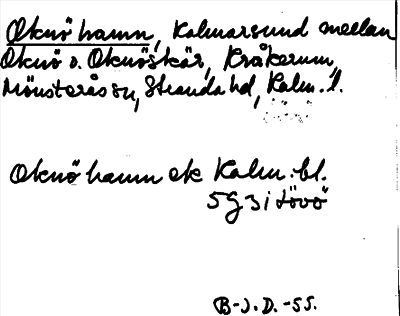 Oknö hamn, Kalmarsund mellan
Oknö o. Oknöskär, Kråkerum,
Mönsterås sn, Stranda hd, Kalm. l.
Oknö hamn ek Kalm. bl.
5 g 3 i Lövö
B-J. D. -55.